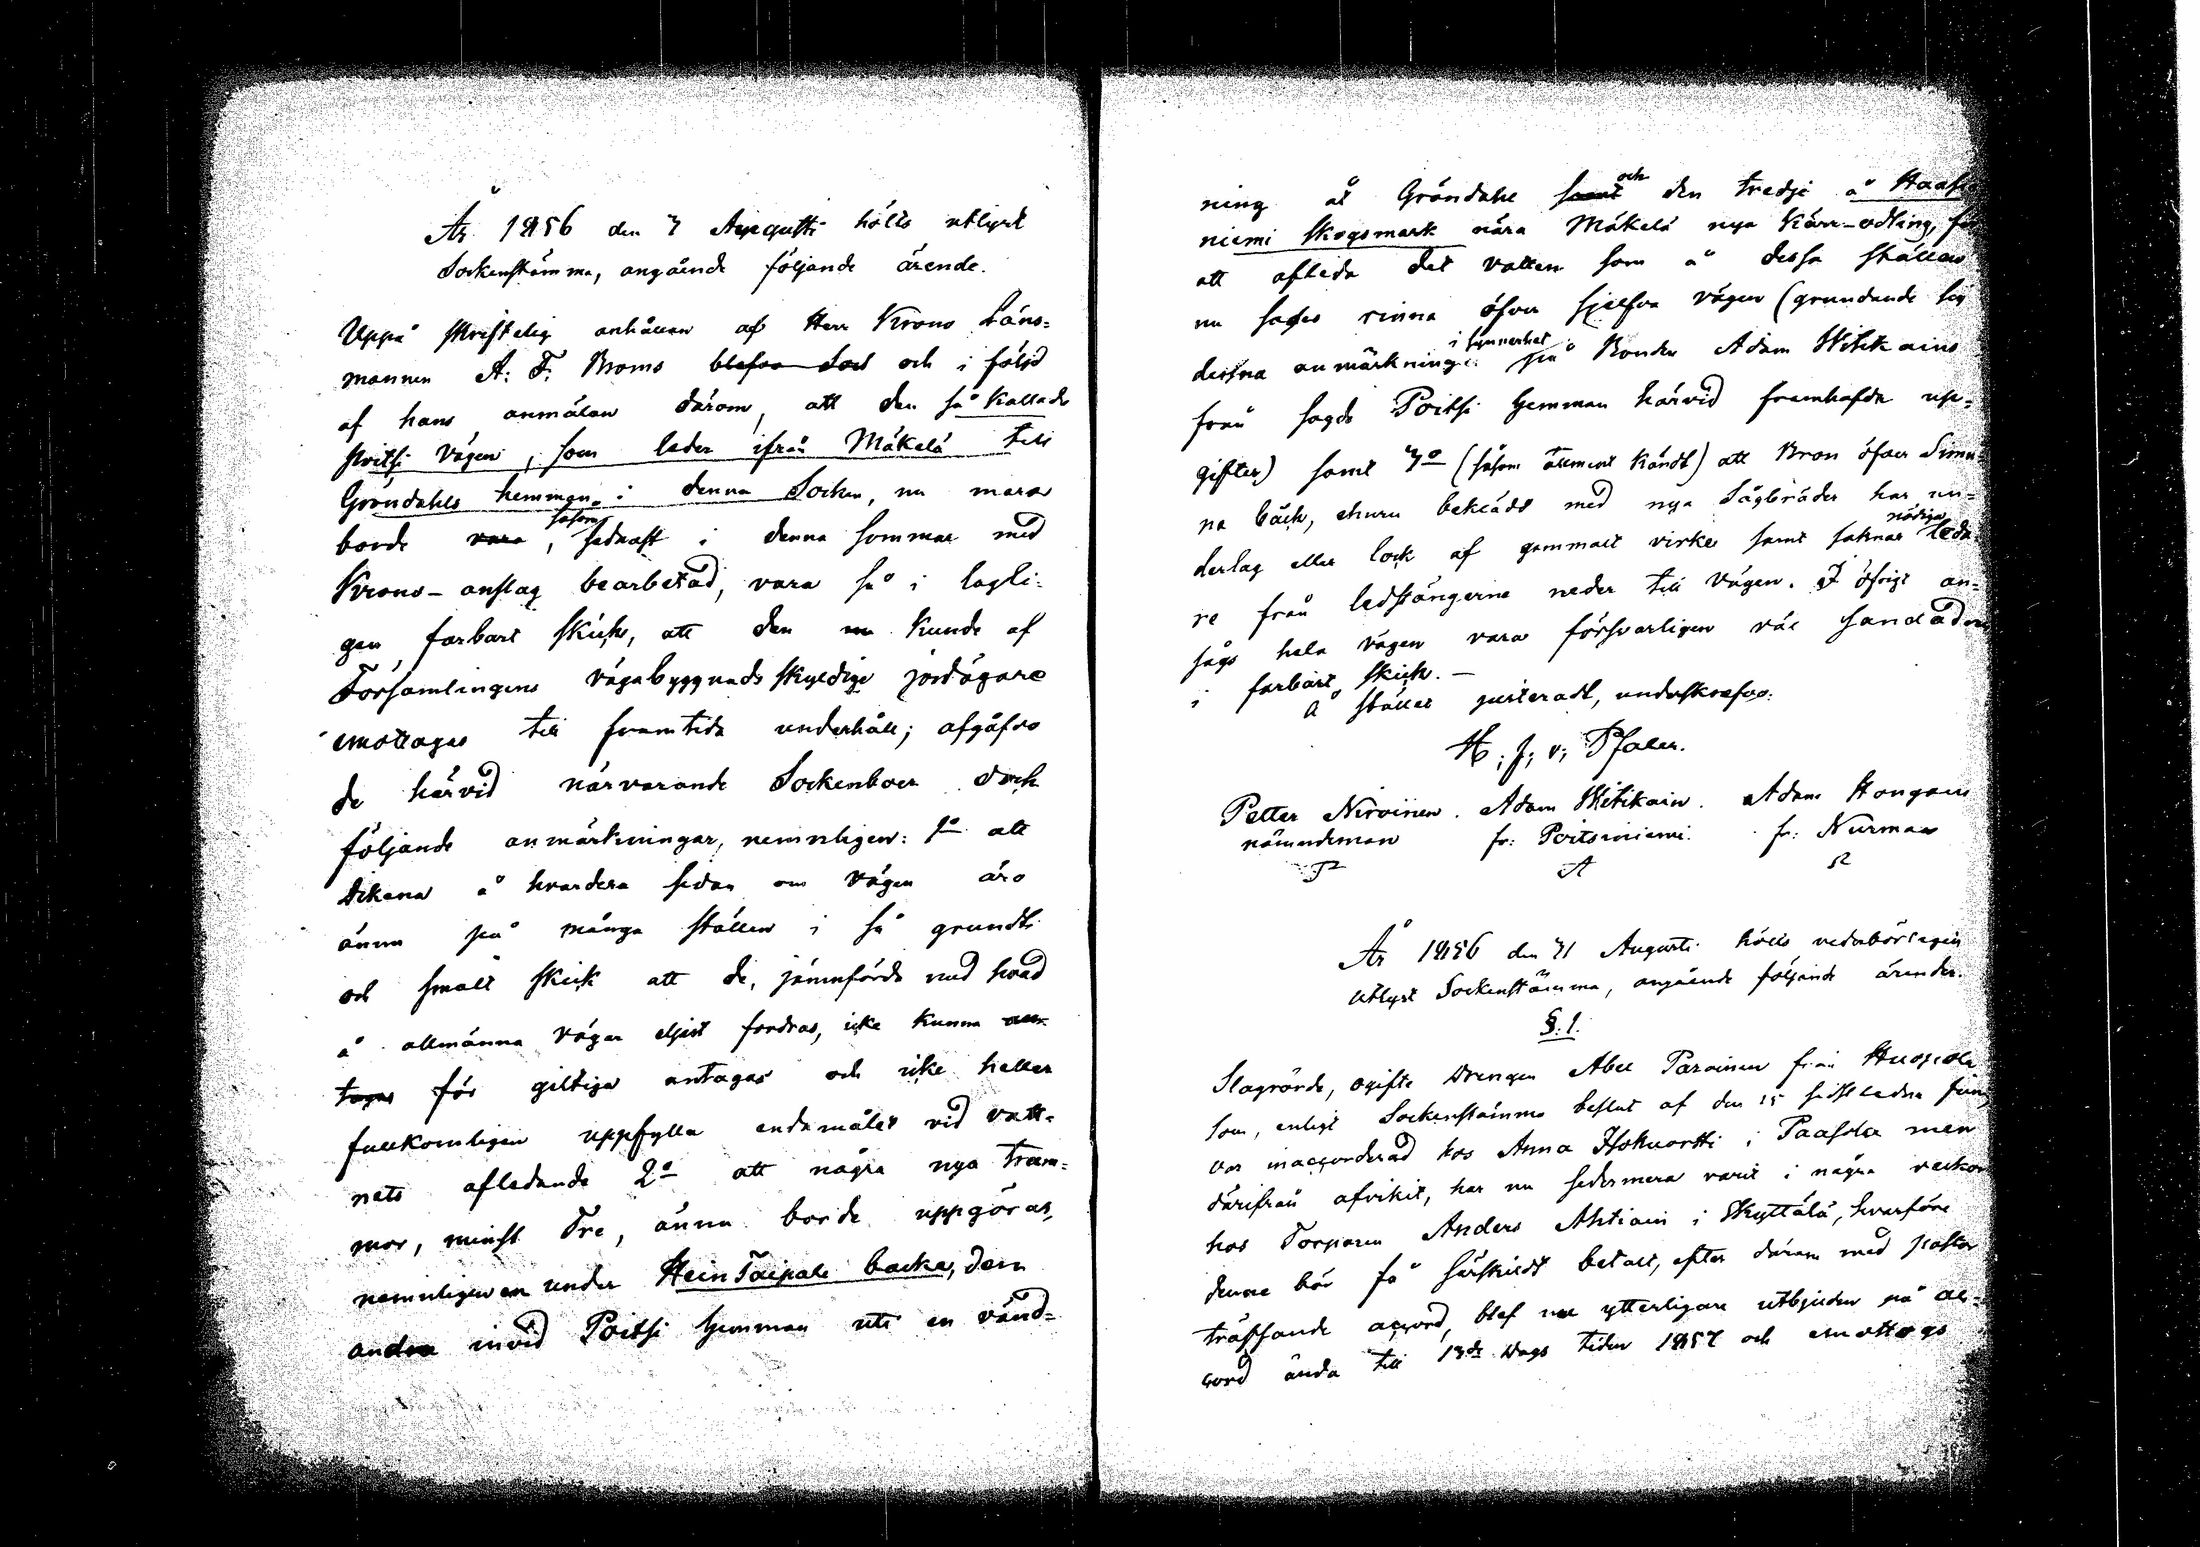 År 1856 den 3 Augusti hölls utlyst
Sockenstämma, angående följande ärende.
Uppå skriftelig anhållan af Herr Krono Läns=
mannen A: F: Broms blefvo och i följd
af hans anmälan därom, att den så kallade
Poitsi vägen, som leder ifrån Mäkelä till
Gröndahls hemman i denna Socken, nu mera
borde vara, såsom sednast i denna sommar med
Krono-anslag bearbetad, vara så i lagli=
gen farbart skick, att den nu kunde af
Församlingens vägabyggnads skyldige jordägare
emottagas till framtida underhåll; afgåfvo
de härvid närvarande Sockenboer dock
följande anmärkningar, nemnligen: 1o att
dikena å hvardera sidan om vägen äro
ännu på många ställen i så grundt
och smalt skick att de, jämnförde med hvad
å allmänna vägar eljest fordras, icke kunna an=
tagas för giltiga antagas och icke heller
fullkomligen uppfylla ändamålet vid vatt=
nets afledande 2o att några nya trum=
mor, minst Tre, ännu borde uppgöras,
nemnligen en under Hein Taipale backe, den
andra invid Poitsi hemman uti en vänd=
ning åt Gröndahl samt och den tredje å Haapa
niemi skogsmark nära Mäkelä nya Kärr-odling, för
att afleda det vatten som å dessa ställen
nu sages rinna öfver sjelfva vägen (grundande sig
dessa anmärkningar i synnerhet på Bonden Adam Witikains
från sagde Poitsi hemman härvid framhafda upp=
gifter) samt 3o (såsom allment kändt) att Bron öfver
na bäck, ehuru beklädt med nya Sågbräder har un=
derlag eller lock af gammalt virke samt saknar nödiga leda=
re från ledstängerne neder till vägen. I öfrigt an=
sågs hela vägen vara försvarligen väl sandad och
i farbart skick. —
å stället justeradt, underskrefvo:
H. J. v. Pfaler.
Petter Nirvinen. Adam Witikain. Adam Hongain
nämndeman fr: Poitsiniemi. fr: Nurmaa
År 1856 den 31 Augusti hölls vederbörligen
utlyst Sockenstämma, angående följande ärender.
§. 1.
Slagrörde, ogifte Drengen Abel Parainen från
som, enligt Sockenstämmo beslut af den 15 sidstledne Junij
var inaccorderad hos Anna Hokuortti i Paasola men
därifrån afvikit, har nu sedermera varit i några veckor
hos Torparen Anders Ahtiain i Skyttälä, hvarföre
denne bör få särskildt betalt, efter därom med pastor
träffande accord, blef nu ytterligare utbjuden på ac=
cord ända till 13de Dags tiden 1857 och emottogs